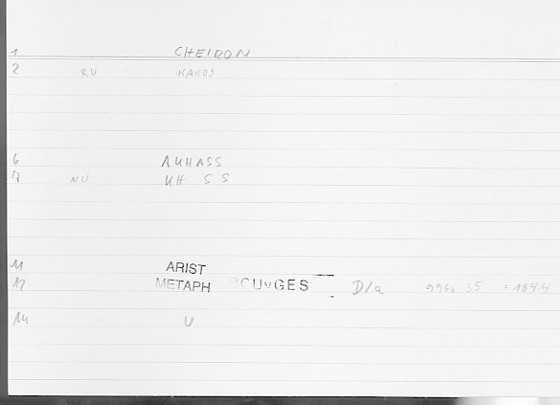 1 CHEIRON
2 RV KAKOS
6 AUHASS
7 NU UH SS
11 ARIST
12 METAPH CUvGES D/a 996a 35 = 184.4
14 U